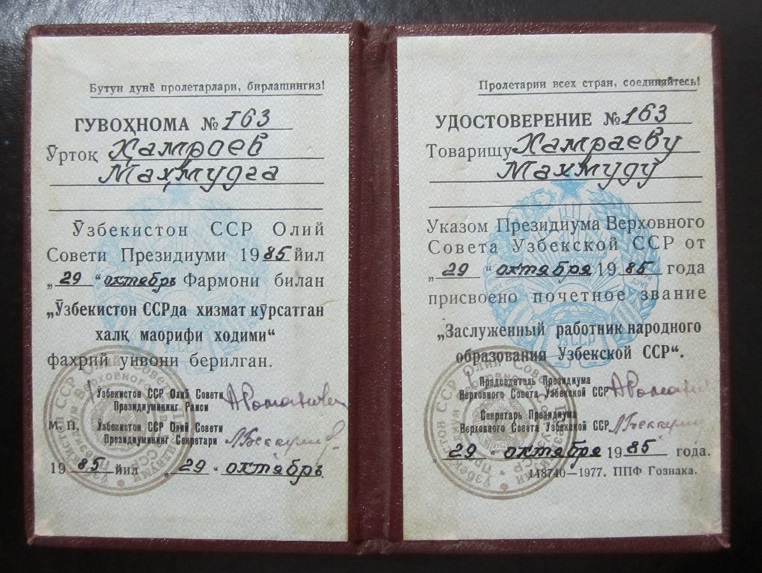 Бутун дунё пролетарлари, бирлашингиз!
ГУВОҲНОМА № 163
Ўртоқ Ҳамроев
Маҳмудга
Ўзбекистон ССР Олий
Совети Президиуми 1985 йил
„29“ октябрь Фармони билан
„Ўзбекистон ССРда хизмат кўрсатган
халқ маорифи ходими“
фахрий унвони берилган.
Ўзбекистон ССР Олий Совети
Президиумининг Раиси
М. П. Ўзбекистон ССР Олий Совети
Президиумининг Секретари
1985 йил „29“ октябрь
Пролетарии всех стран, соединяйтесь!
УДОСТОВЕРЕНИЕ № 163
Товарищу Хамраеву
Махмуду
Указом Президиума Верховного
Совета Узбекской ССР от
„29“ октября 1985 года
присвоено почетное звание
„Заслуженный работник народного
образования Узбекской ССР“.
Председатель Президиума
Верховного Совета Узбекской ССР
Секретарь Президиума
Верховного Совета Узбекской ССР
„29“ октября 1985 года.
448740—1977. ППФ Гознака.